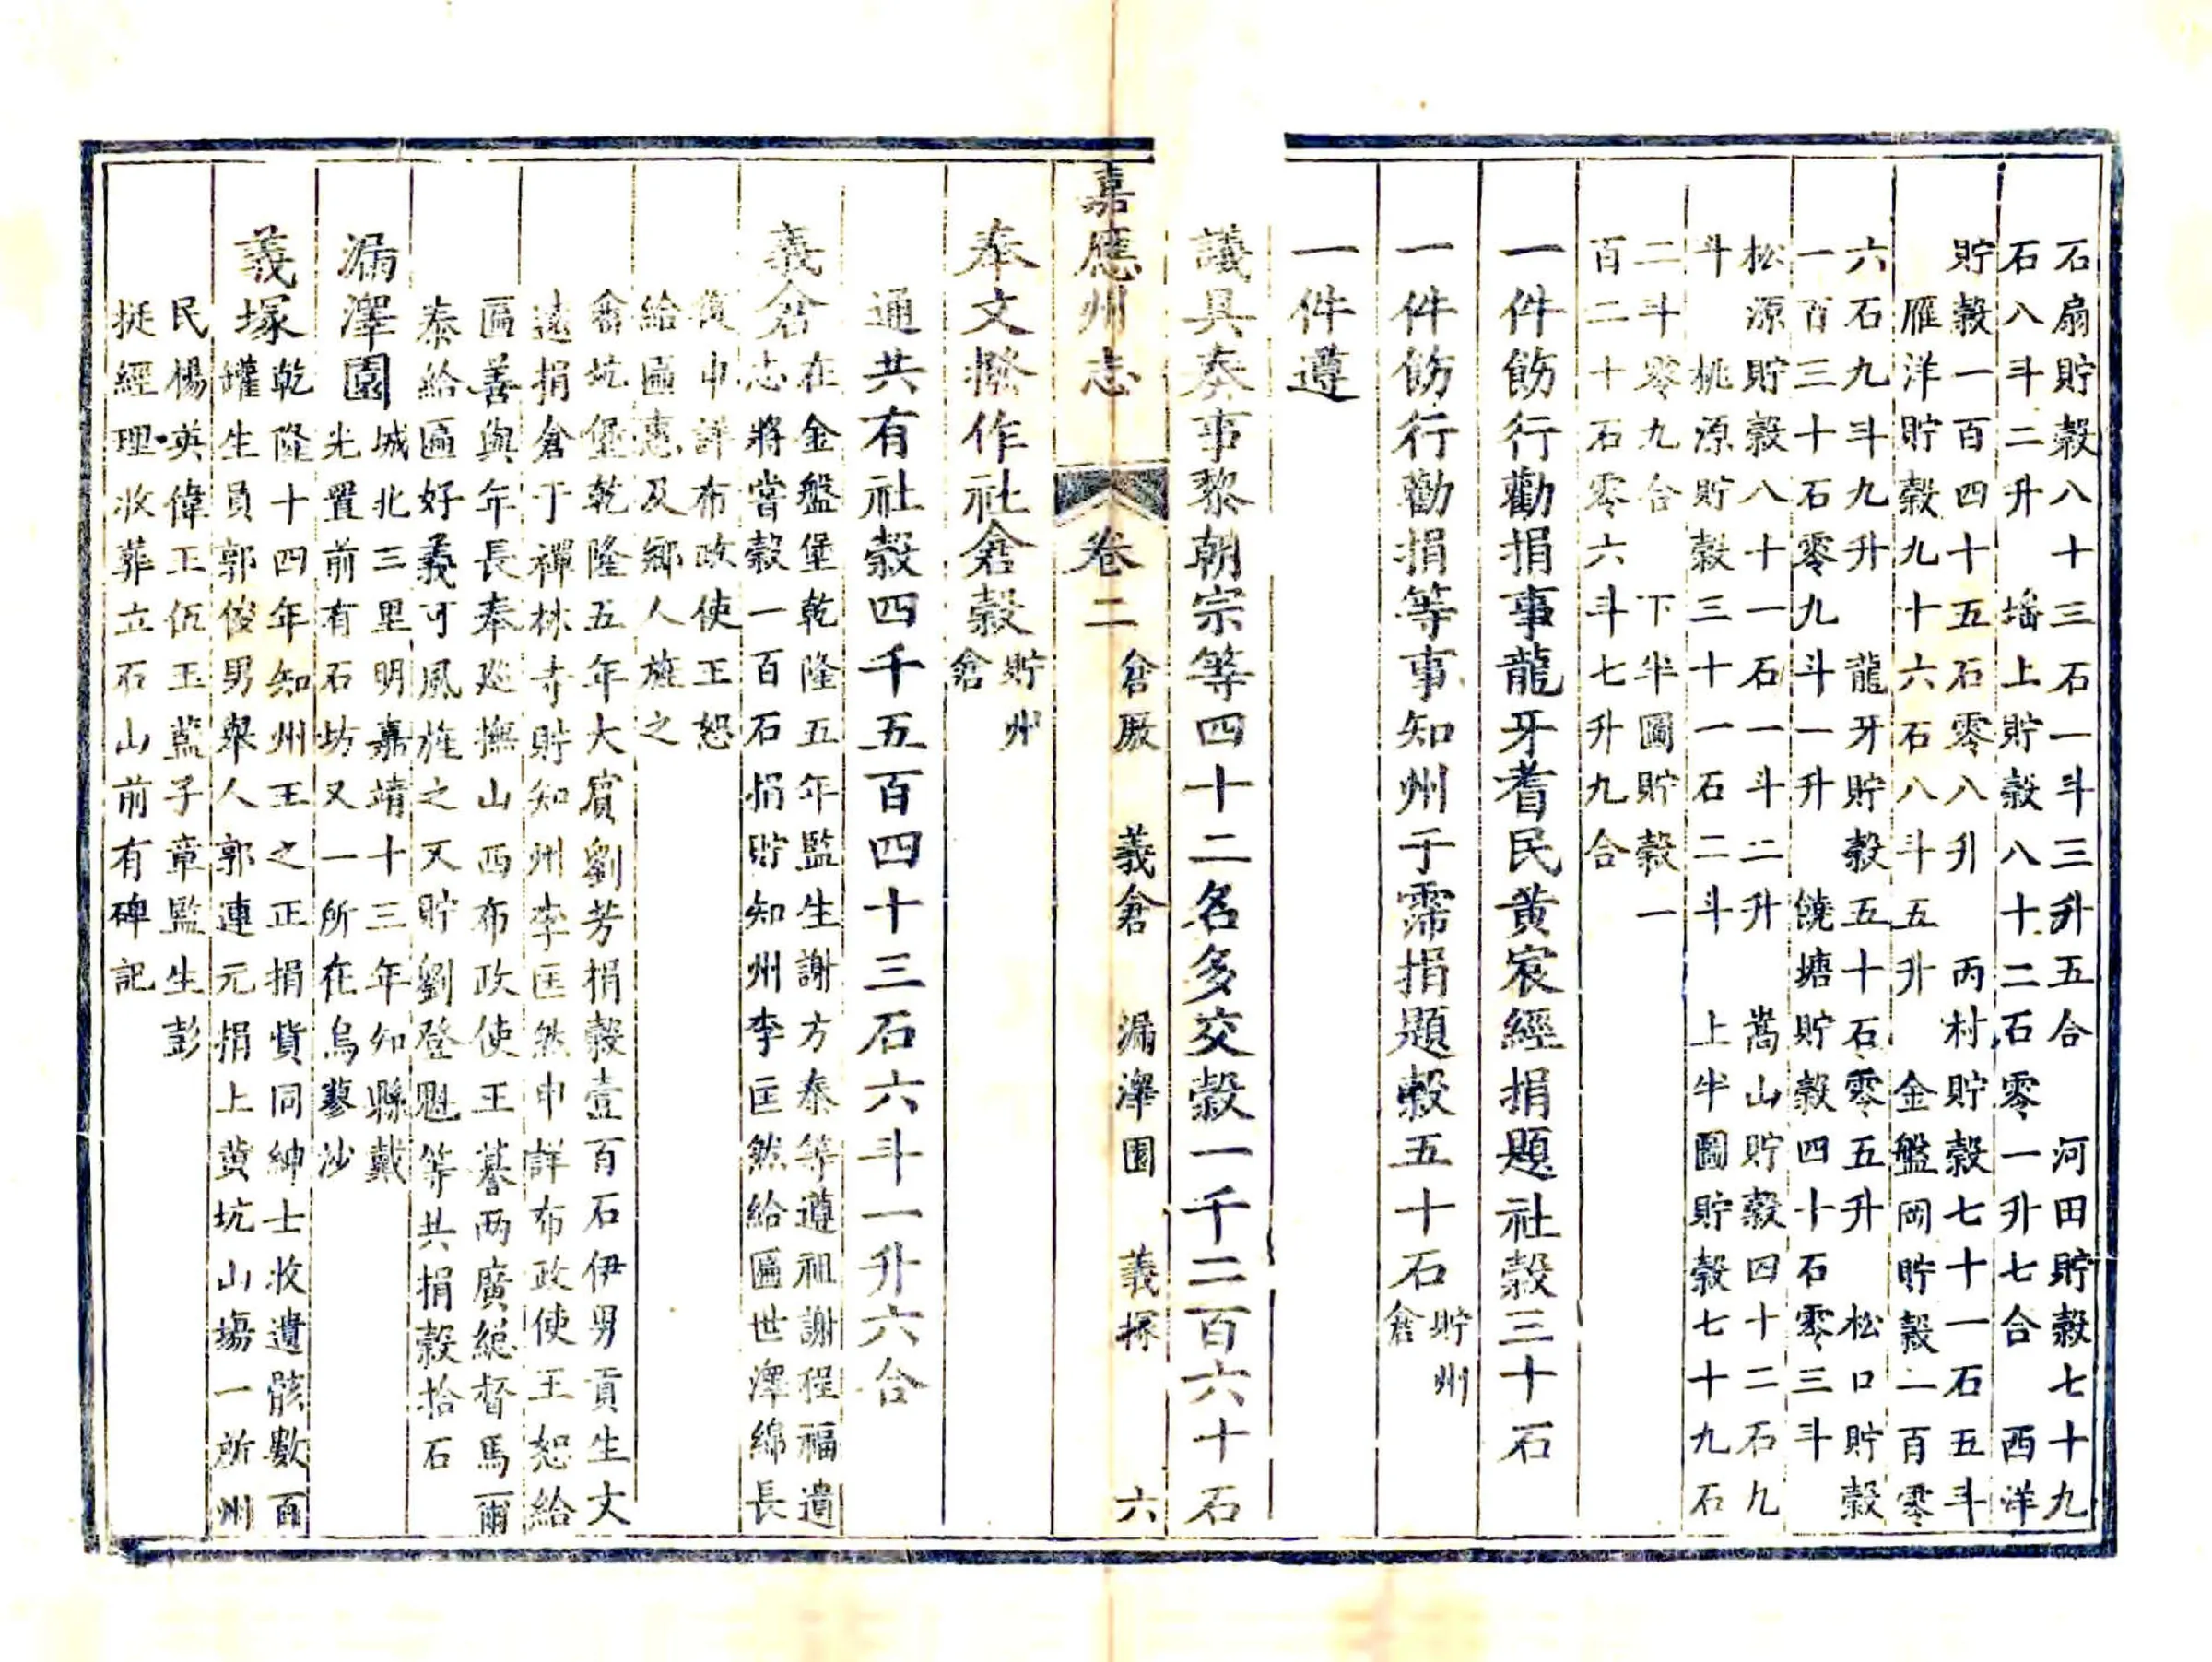 石扇貯穀八十三石一斗三升五合　河田貯穀七十九
石八斗二升　墦上貯穀八十二石零一升七合　西洋
貯穀一百四十五石零八升　丙村貯穀七十一石五斗
雁洋貯穀九十六石八斗五升　金盤岡貯穀二百零
六石九斗九升　龍牙貯穀五十石零五升　松口貯穀
一百三十石零九斗一升　饒塘貯穀四十石零三斗
松源貯穀八十一石一斗二升　嵩山貯穀四十二石九
斗　桃源貯穀三十一石二斗　上半圖貯穀七十九石
二斗零九合　下半圖貯穀一
百二十石零六斗七升九合
一件飭行勸捐事龍牙耆民黄宸經捐題社穀三十石
一件飭行勸捐等事知州于霈捐題穀五十石貯州
倉
一件遵
議具奏事黎朝宗等四十二名多交穀一千二百六十石
嘉應州志　卷二　倉厫　義倉　漏澤園　義塚　六
奉文撥作社倉穀貯州
倉
通共有社穀四千五百四十三石六斗一升六合
義倉在金盤堡乾隆五年監生謝方泰等遵祖謝程福遺
志將嘗穀一百石捐貯知州李匡然給匾世澤綿長
復申詳布政使王恕
給匾惠及鄉人旌之
畬坑堡乾隆五年大賓劉芳捐穀壹百石伊男貢生文
遠捐倉于禪林寺貯知州李匡然申詳布政使王恕給
匾善與年長奉廵撫山西布政使王謩两廣緫督馬爾
泰給匾好義可風旌之又貯劉登魁等共捐穀拾石
漏澤園城北三里明嘉靖十三年知縣戴
光置前有石坊又一所在烏蓼沙
義塚乾隆十四年知州王之正捐貲同紳士收遺骸數百
罐生員郭俊男舉人郭連元捐上黄坑山塲一所州
民楊英偉王伍玉藍子章監生彭
挺經理收葬立石山前有碑記